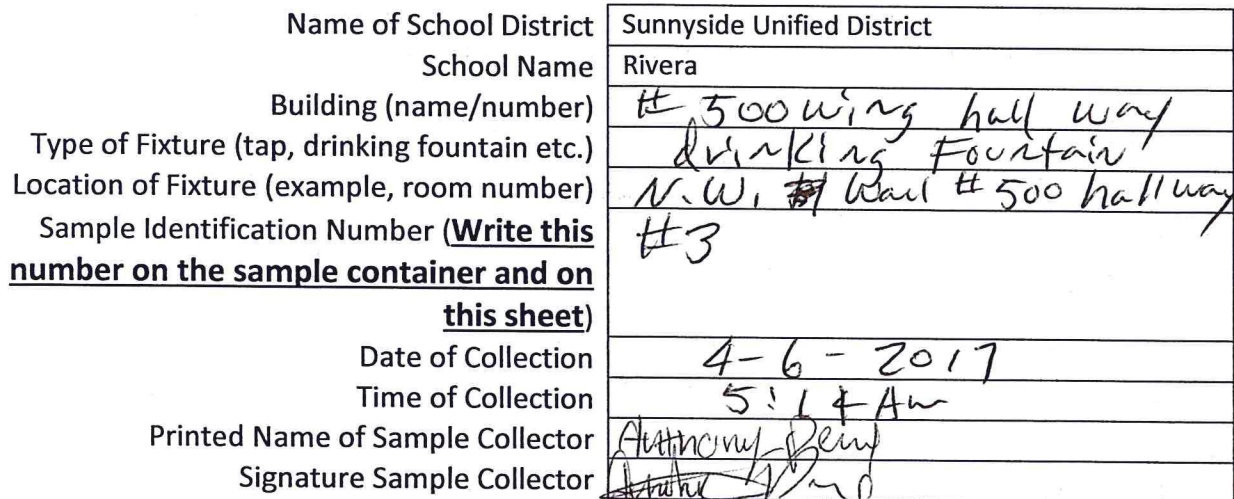 Name of School District Sunnyside Unified District
School Name Rivera
Building (name/number) # 500 wing hall way
Type of Fixture (tap, drinking fountain etc.) drinking Fountain
Location of Fixture (example, room number) N.W. Wall # 500 hallway
Sample Identification Number (Write this #3
number on the sample container and on
this sheet)
Date of Collection 4-6-2017
Time of Collection 5:14 Am
Printed Name of Sample Collector Anthony
Signature Sample Collector